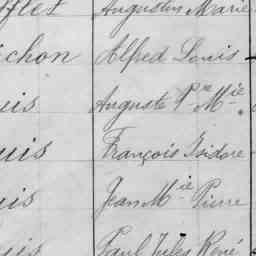 Augustin Marie
chon Alfred Louis
uis Auguste Pre Mie
uis François Isidore
uis Jean Mie Pierre
uis Paul Jules René